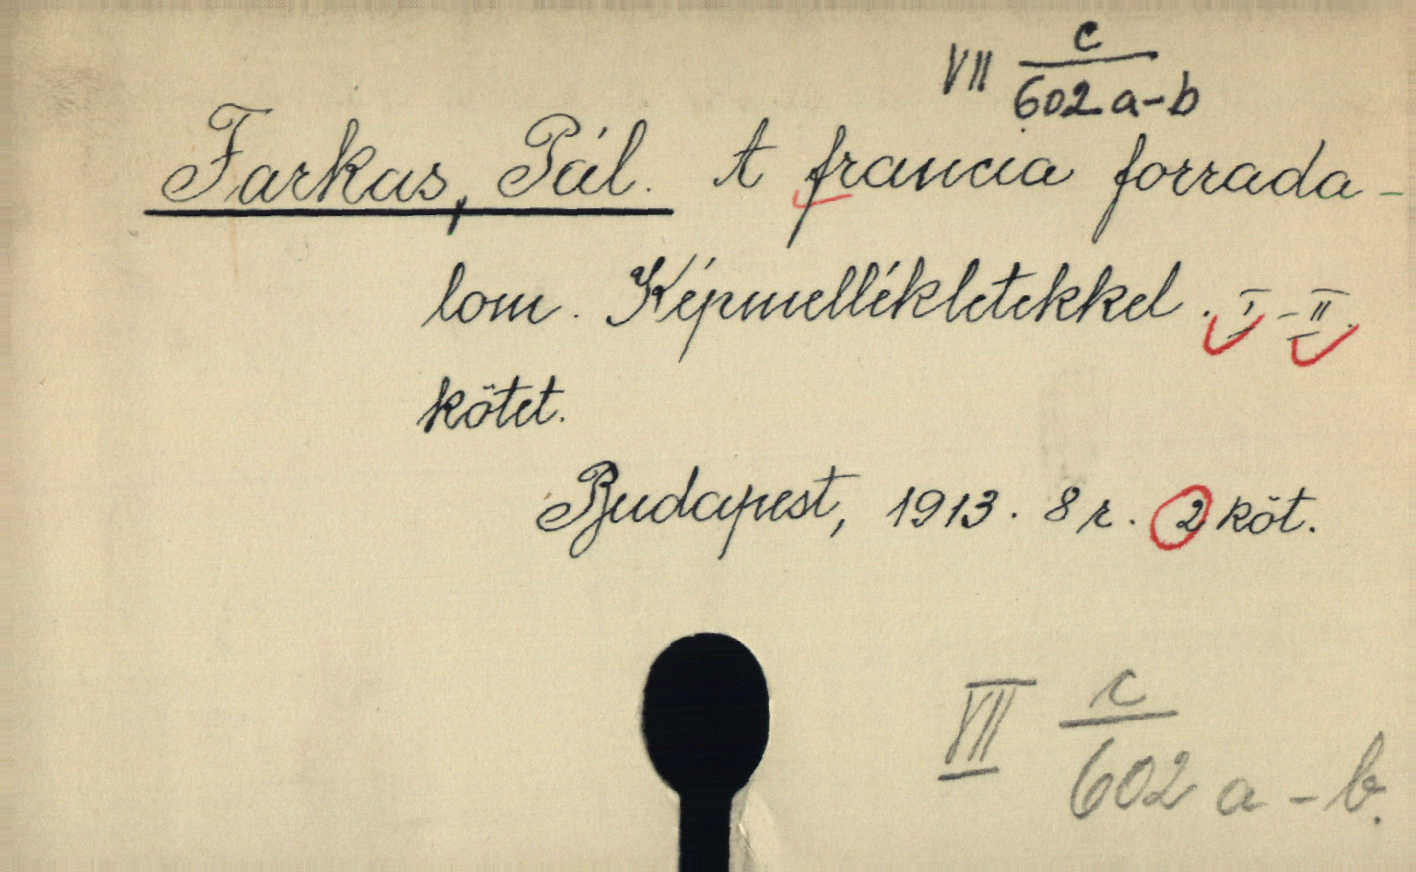 VII c/602 a-b
Farkas, Pál. A francia forrada-
lom. Képmellékletekkel. I-II.
kötet.
Budapest, 1913. 8 r. 2 köt.
VII c/602 a-b.